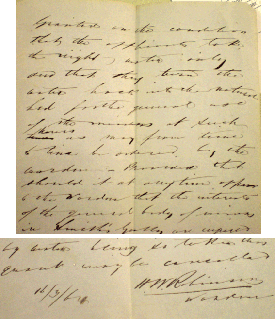 Granted on the condition
that the applicants take
the night water only
and that they turn the
water back into the natural
bed for the general use
of the miners at such
hours as may from time
to time be ordered by the
warden - Provided that
should it at any time appear
to the Warden that the interests
of the general body of miners
in Smith's Gulley are
by water being so
may be cancelled
Warden